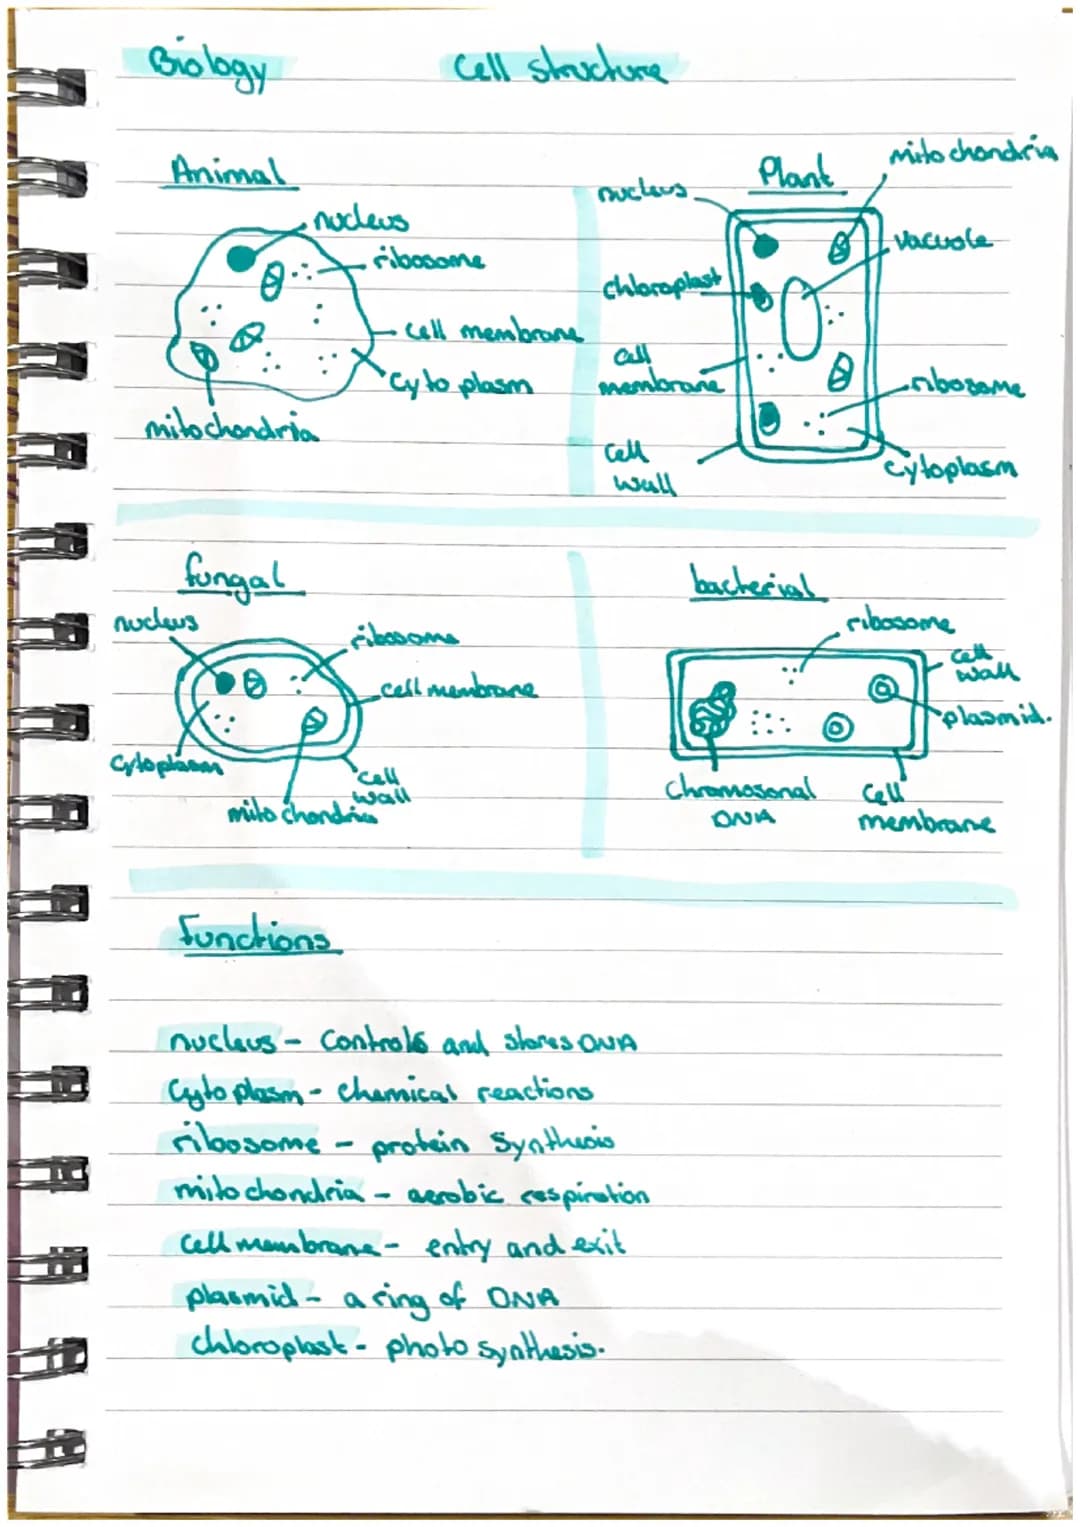 Biology
Cell structure
Animal
nucleus
ribosome
cell membrane
Cytoplasm
mitochondria
Plant
mitochondria
nucleus
vacuole
chloroplast
cell
membrane
ribosome
cell
wall
cytoplasm
fungal
nucleus
ribosome
cell membrane
cytoplasm
cell
wall
mitochondria
bacterial
ribosome
cell
wall
plasmid.
chromosonal
DNA
cell
membrane
Functions
nucleus - controls and stores DNA
Cytoplasm - chemical reactions
ribosome - protein synthesis
mitochondria - aerobic respiration
cell membrane - entry and exit
plasmid - a ring of DNA
chloroplast - photosynthesis.